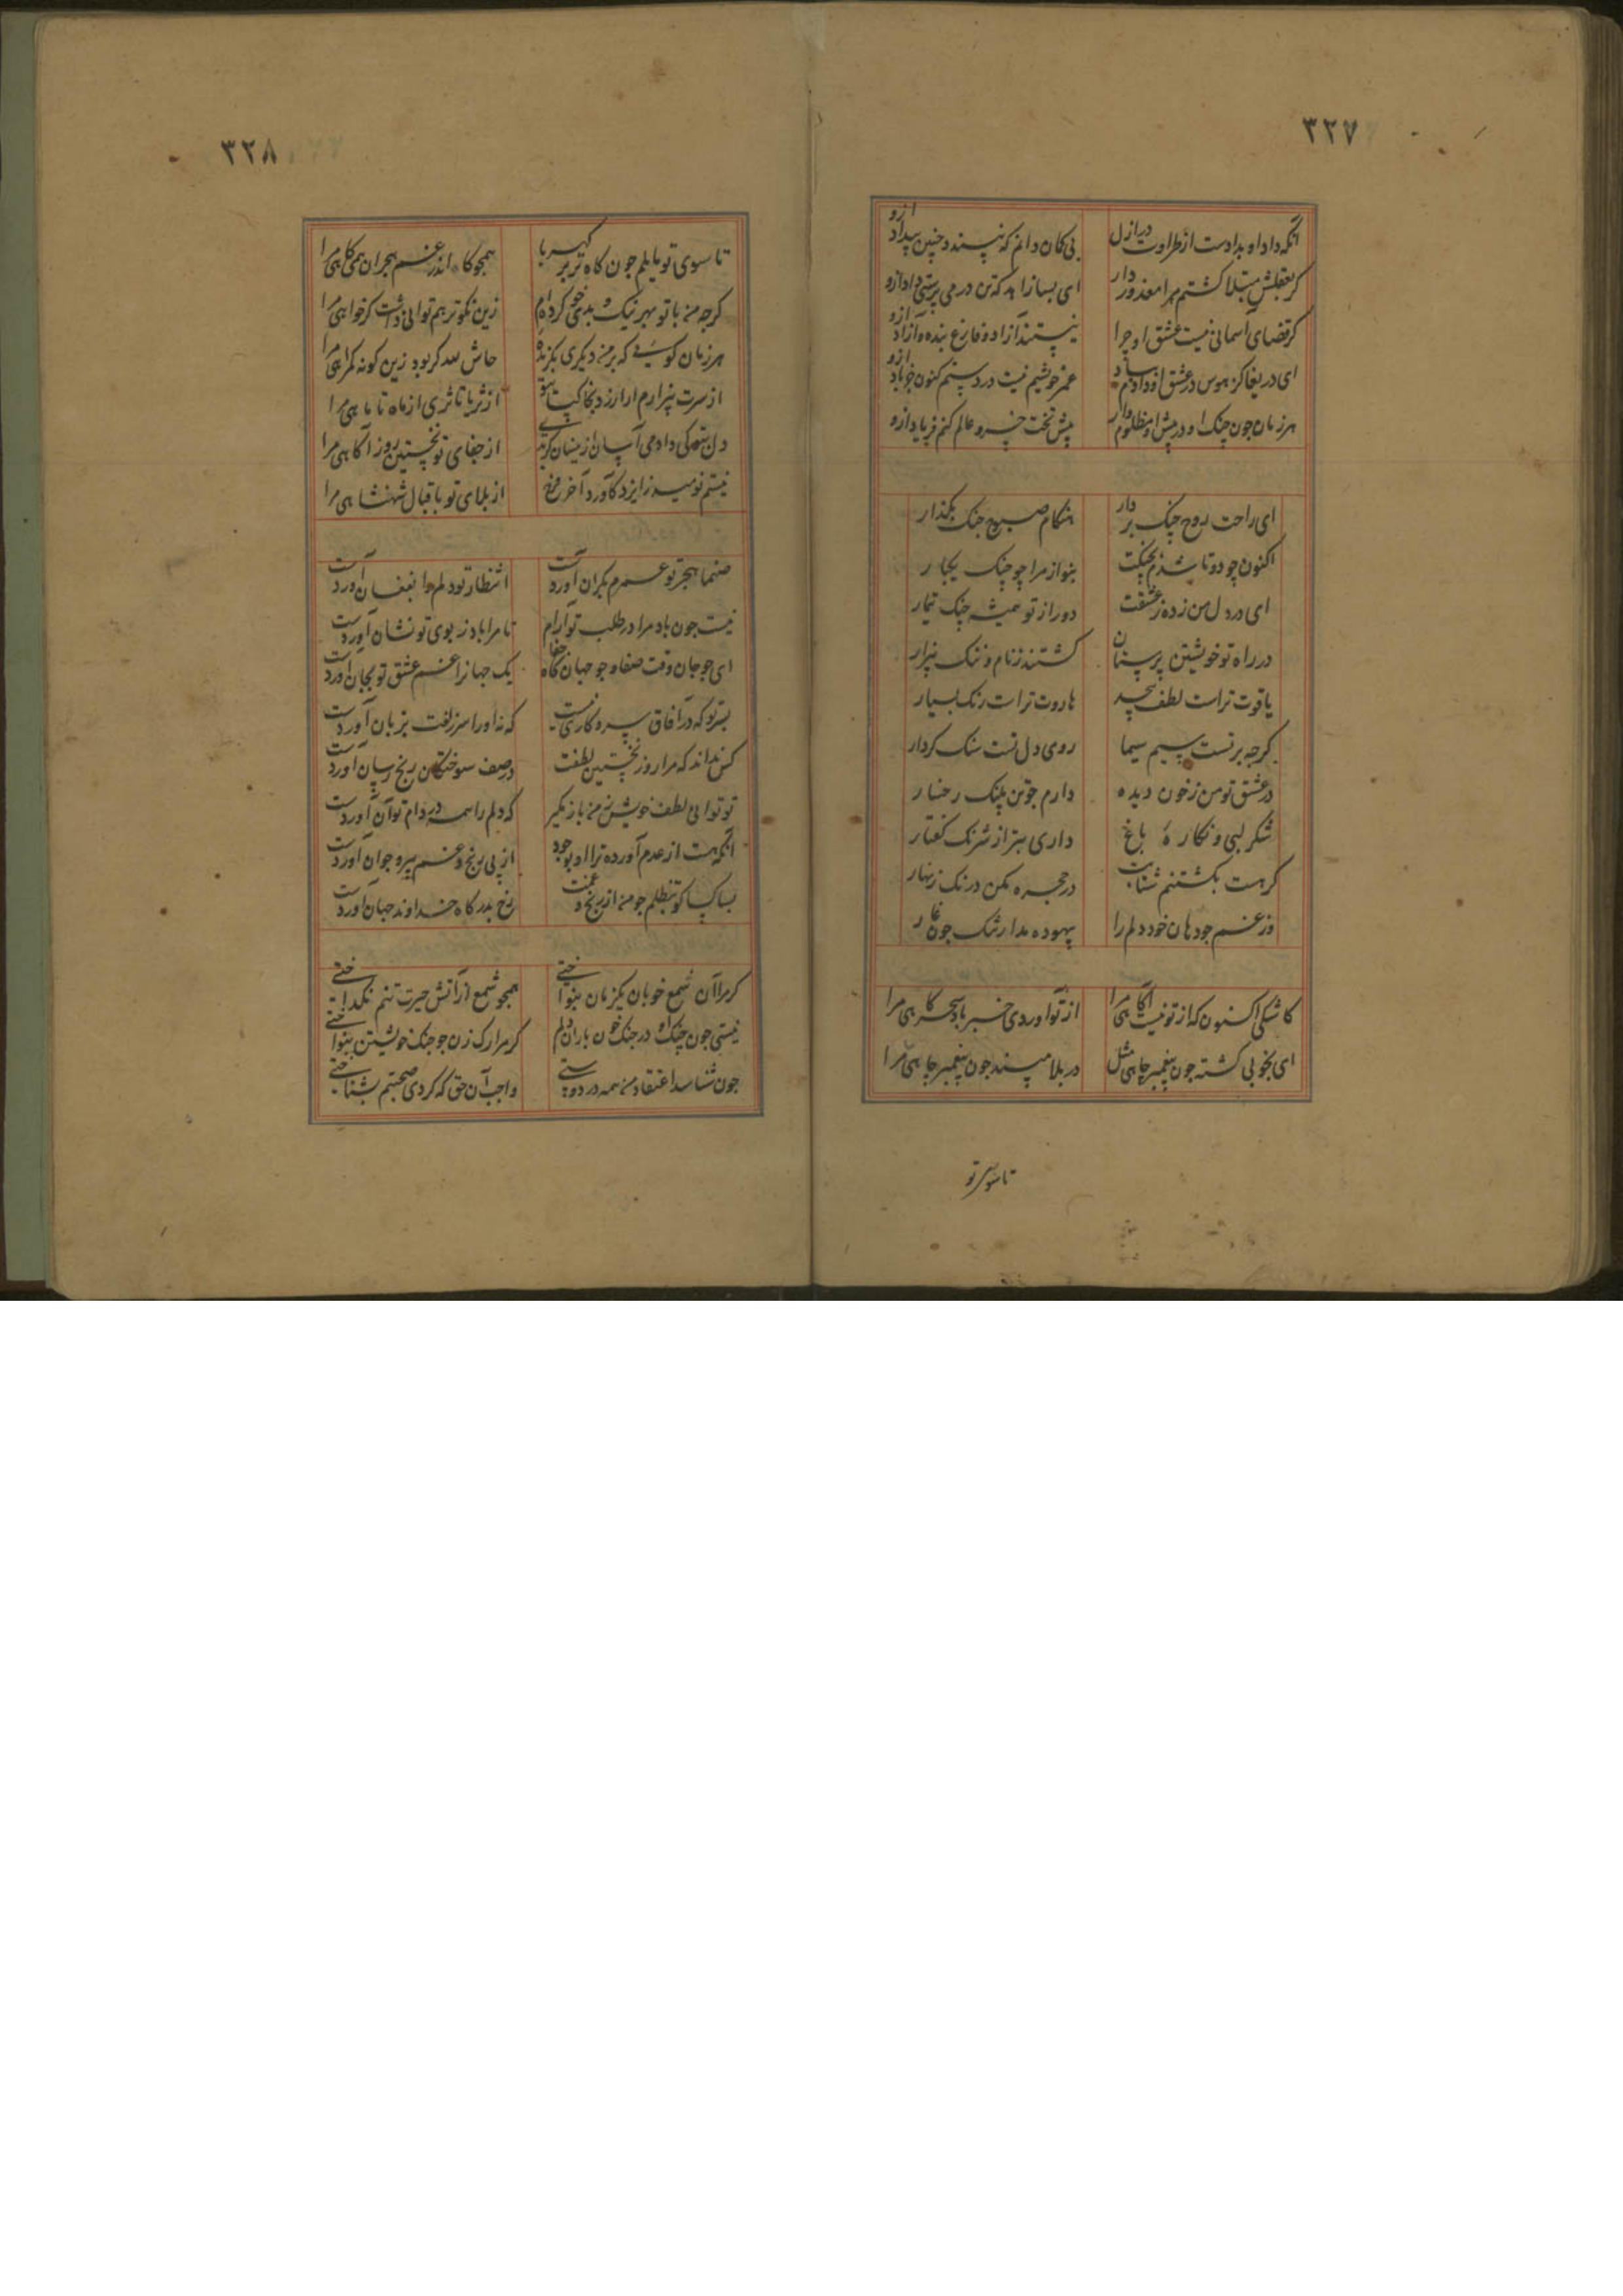 ۳۲۷
آنکه داد او بدادست از طراوت در ازل
بی کمان دانم که نپسندد چنین بیداد ازو
کر بعقلش مبتلا کشتم مرا معذور دار
ای بسا زاهد که تن در می پرستی داد ازو
کر قضای آسمانی نیست عشق او چرا
نیستند آزاد و فارغ بنده و آزاد ازو
ای دریغا کز هوس در عشق او دادم بباد
عمر خوشیم نیست در دستم کنون جز باد ازو
هر زمان چون چنک او در پیش او مظلوم وار
پیش تخت خسرو عالم کنم فریاد ازو
ای راحت روح چنک بردار
هنکام صبوح جنک بکذار
اکنون چو دوتا شدم بچنکت
بنواز مرا چو چنک یکبار
ای در دل من زده ز عشقت
دور از تو همیشه چنک تیمار
در راه تو خویشتن پرستان
کشتند ز نام و ننک بیزار
یاقوت تراست لطف بیحد
هاروت تراست رنک بسیار
کرچه بر تست سیم سیما
روی دل تست سنک کردار
در عشق تو من ز خون دیده
دارم چو تن پلنک رخسار
شکر لبی و نکاره باغ
داری بتر از شرنک کفتار
کر هست بکشتنم شتابت
در حجره مکن درنک زنهار
وز غم چو دهان خود دلم را
بیهوده مدار تنک چون غار
کاشکی اکنون که از تو نیست آکاهی مرا
از تو آوردی خبر باد سحرکاهی مرا
ای بخوبی کشته چون پیغمبر چاهی مثل
در بلا مپسند چون پیغمبر چاهی مرا
تا سوی تو
۳۲۸
تا سوی تو مایلم چون کاه بر کهربا
همچو کاه اندر غم هجران همی کاهی مرا
کرچه من با تو بهر نیک و بدی خو کرده ام
زین نکوتر هم توانی داشت کر خواهی مرا
هر زمان کویی که بر من دیکری بکزیده
حاش لله کر بود زین کونه کمراهی مرا
از سرت بیزارم ار ارزد بخاک پای تو
از ثریا تا ثری از ماه تا ماهی مرا
دل بتو کی دادمی آسان ازینسان کر بدی
از جفای تو نخستین روز آکاهی مرا
نیستم نومید ز ایزد کآورد آخر فرج
از بلای تو باقبال شهنشاهی مرا
صنما هجر تو عمرم بکران آوردست
انتظار تو دلم را بفغان آوردست
نیست چون باد مرا در طلب تو آرام
تا مرا باد ز بوی تو نشان آوردست
ای چو جان وقت صفا و چو جهان کاه جفا
یک جهانرا غم عشق تو بجان آوردست
بسر تو که در آفاق سر و کاری نیست
که نه او را سر زلفت بزیان آوردست
کس نداند که مرا روز نخستین لطفت
در صف سوختکان رنج رسان آوردست
تو توانی لطف خویش ز من باز مکیر
که دلم را همه در دام تو آن آوردست
آنکه هست از عدم آورده ترا او بوجود
از پی رنج و غم پیر و جوان آوردست
بسا کسا کو بتظلم چو من از رنج و غمت
رخ بدرکاه خداوند جهان آوردست
کر مرا آن شمع خوبان یکزمان بنواختی
همچو شمع از آتش حیرت تنم نکداختی
نیستی چون چنک او در چنک خون باران دلم
کر مرا رک زن چو چنک خویشتن بنواختی
چون شناسد اعتقاد من همه در دوستی
واجب آن حق که کردی صحبتم بشناختی